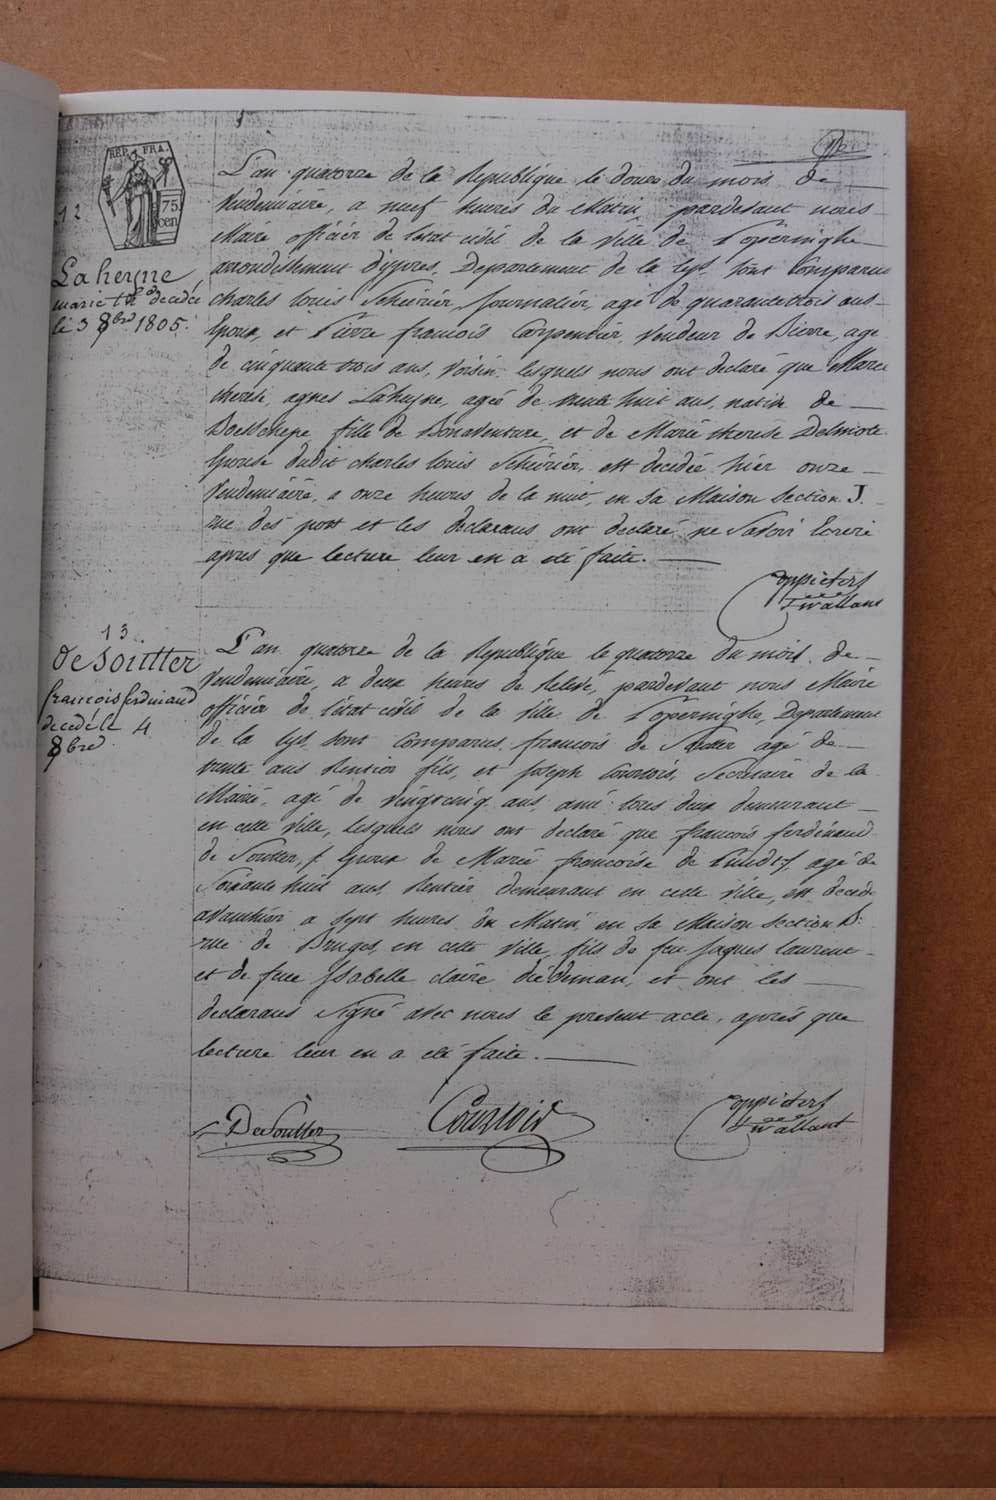 REP. FRA.
75
cen
12
Laheyne
marie th. decedée
le 3 8bre 1805.
L'an quatorze de la Republique le douze du mois de
Vendemiaire, a neuf heures du Matin pardevant nous
Maire officier de l'etat civil de la ville de Poperinghe
arrondissement d'ypres, Departement de la Lys sont Comparus
charles louis, Journalier, agé de quarante trois ans
Epoux, et Pierre francois Carpentier, Vendeur de Bierre, age
de cinquante trois ans, Voisin, lesquels nous ont declaré que Marie
therese agnes Laheyne, agée de trente huit ans, native de
Boeschepe fille de Bonaventure, et de Marie therese Delmote
Epouse dudit charles louis, est decedée hier onze
Vendemiaire, a onze heures de la nuit, en sa Maison section J.
rue des pont et les declarans ont declaré ne Savoir Ecrire
apres que lecture leur en a été faite.
Coppieters
T'wallant
13
de soutter
francois ferdinand
decedé le 4
8bre
L'an quatorze de la Republique le quatorze du mois de
Vendemiaire, a deux heures de Relevé, pardevant nous Maire
officier de l'etat civil de la ville de Poperinghe, Departement
de la Lys sont Comparus francois de Soutter agé de
trente ans Rentier fils, et Joseph Courtois, Secretaire de la
Mairie, agé de vingt cinq ans, ami tous deux demeurant
en cette Ville, lesquels nous ont declaré que francois ferdinand
de Soutter, Epoux de Marie francoise de, agé de
Soixante huit ans Rentier demeurant en cette ville, est decedé
avanthier a sept heures du Matin, en sa Maison section D:
rue de Bruges, en cette Ville, fils de feu Jaques laurent
et de feue Isabelle claire, et ont les
declarans Signé avec nous le present acte, aprés que
lecture leur en a été faite.
DeSoutter
Courtois
Coppieters
T'wallant